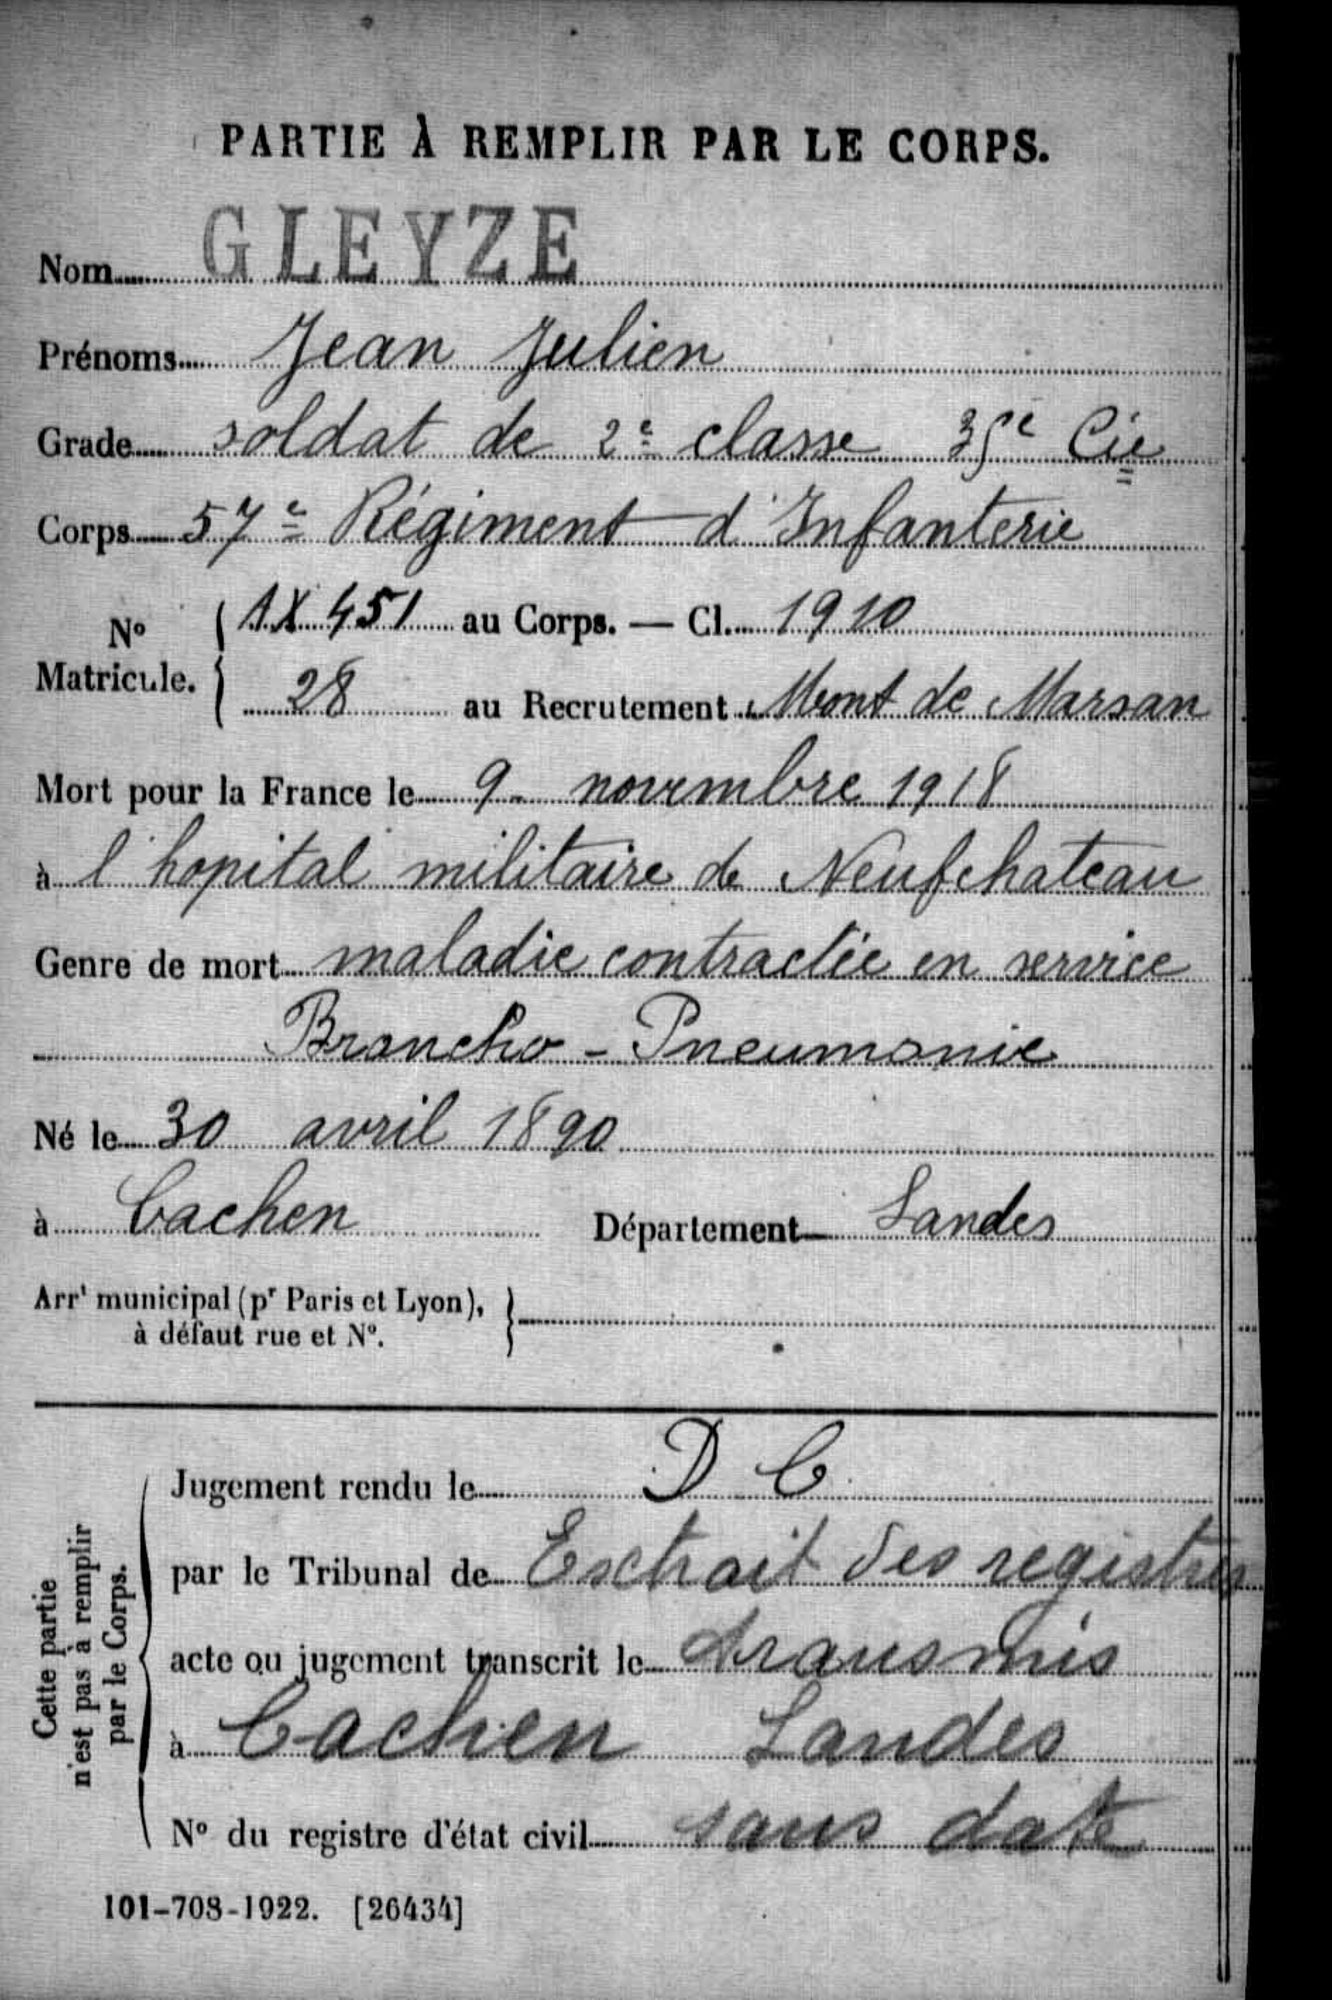 PARTIE À REMPLIR PAR LE CORPS.
Nom GLEYZE
Prénoms Jean Julien
Grade soldat de 2e classe 35e Cie
Corps 57e Régiment d'Infanterie
No Matricule. { 1X 451 au Corps. — Cl. 1910
28 au Recrutement Mont de Marsan
Mort pour la France le 9 novembre 1918
à l'hopital militaire de Neufchateau
Genre de mort maladie contractée en service
Broncho-Pneumonie
Né le 30 avril 1890
à Cachen Département Landes
Arrt municipal (pr Paris et Lyon), }
à défaut rue et No.
Cette partie
n'est pas à remplir
par le Corps.
Jugement rendu le D C
par le Tribunal de Extrait des registres
acte ou jugement transcrit le transmis
à Cachen Landes
No du registre d'état civil sans date
101-708-1922. [26434]